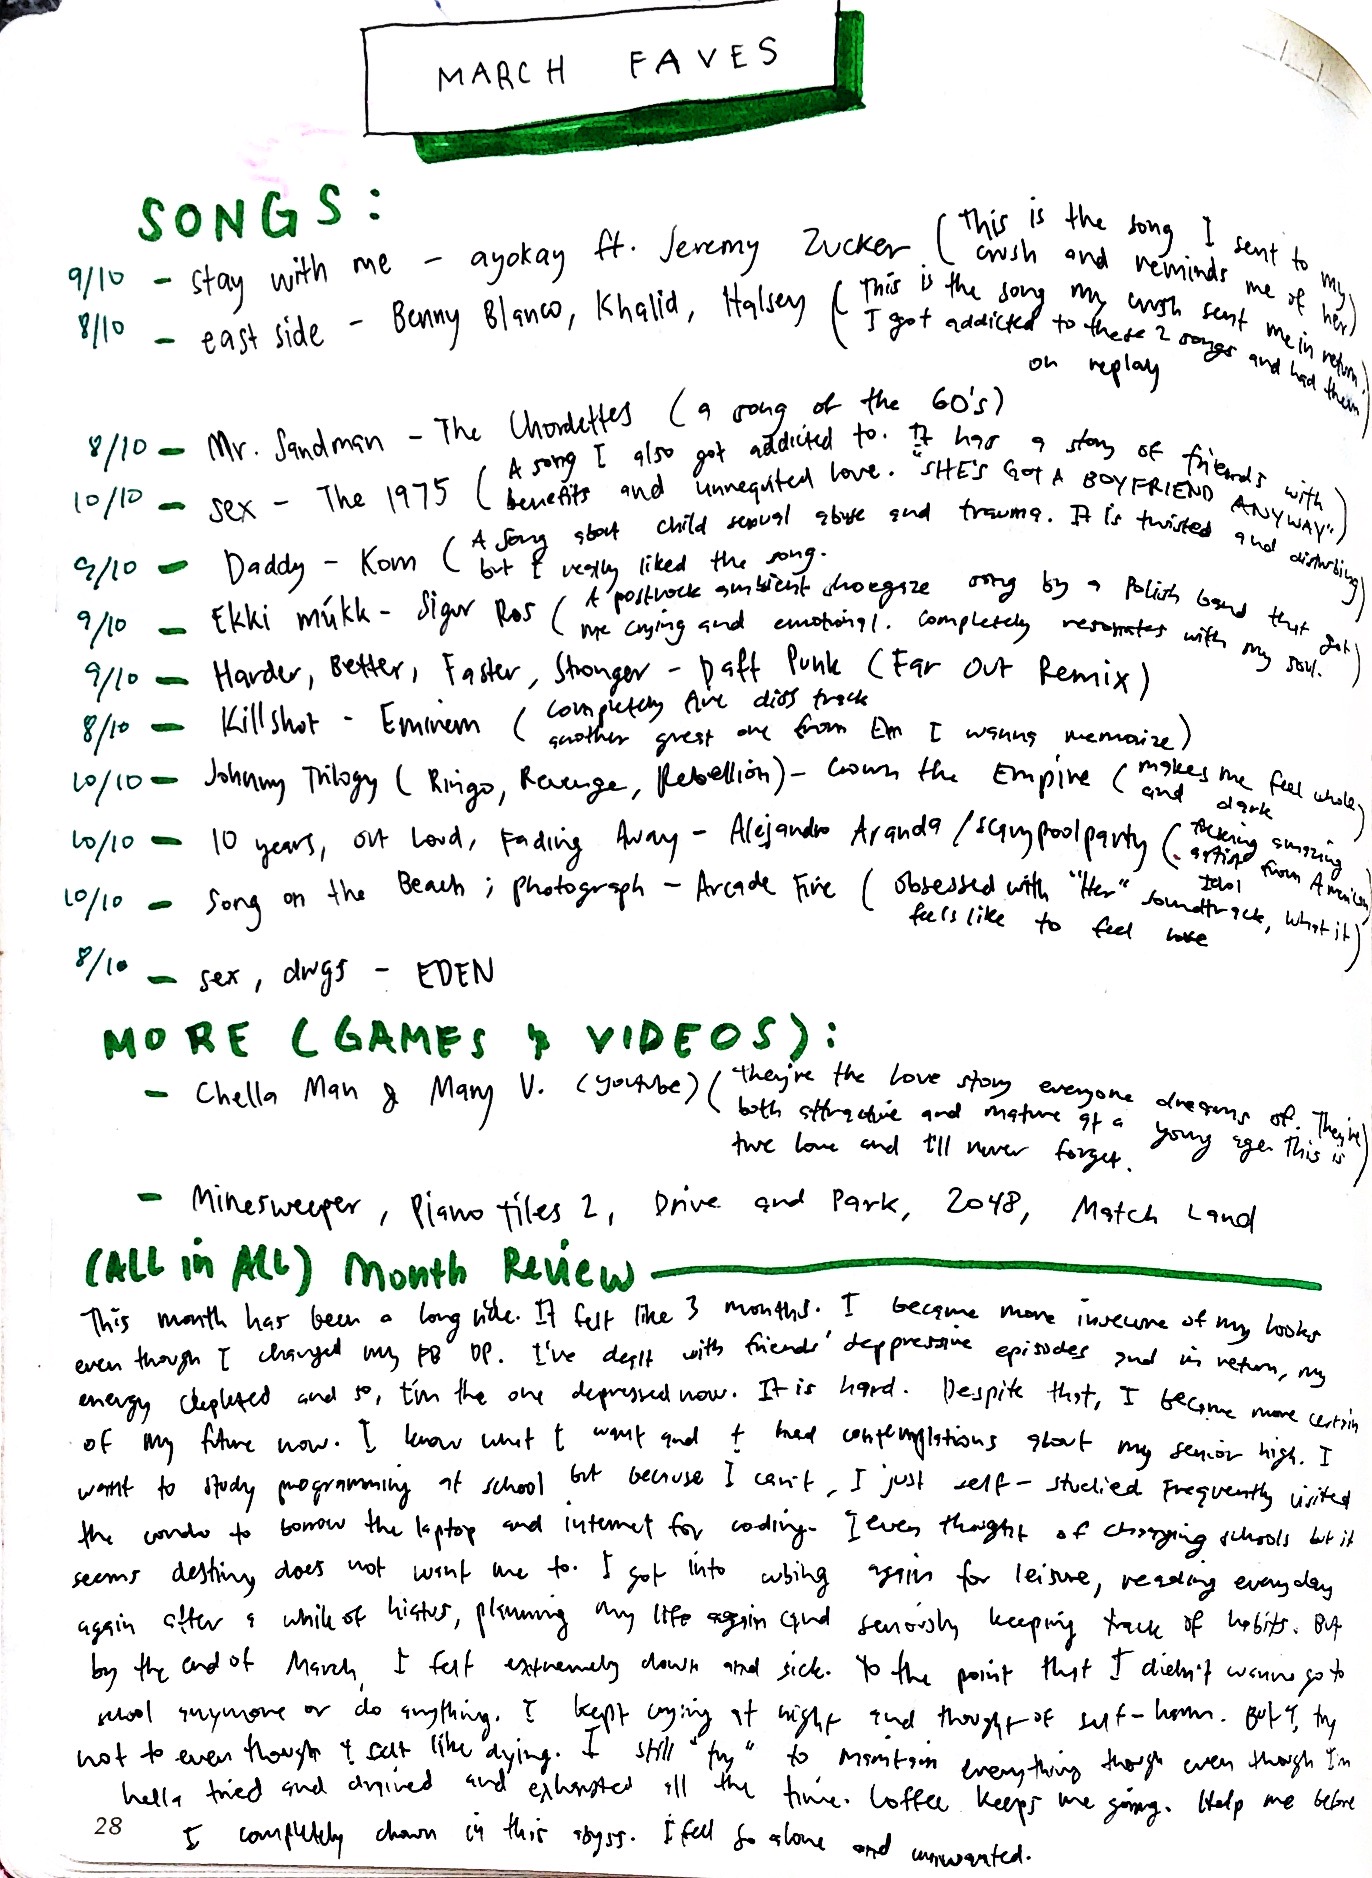 MARCH FAVES
SONGS:
9/10 - stay with me - ayokay ft. Jeremy Zucker (This is the song I sent to my
crush and reminds me of her)
8/10 - east side - Benny Blanco, Khalid, Halsey (This is the song my crush sent me in return.
I got addicted to these 2 songs and had them
on replay)
8/10 - Mr. Sandman - The Chordettes (a song of the 60's)
10/10 - sex - The 1975 (A song I also got addicted to. It has a story of friends with
benefits and unrequited love. "SHE'S GOT A BOYFRIEND ANYWAY")
9/10 - Daddy - Korn (A song about child sexual abuse and trauma. It is twisted and disturbing
but I really liked the song.)
9/10 - Ekki múkk - Sigur Ros (A postrock ambient shoegaze song by a Polish band that got
me crying and emotional. Completely resonates with my soul.)
9/10 - Harder, Better, Faster, Stronger - Daft Punk (Far Out Remix)
8/10 - Killshot - Eminem (completely fire diss track
another great one from Em I wanna memorize)
10/10 - Johnny Trilogy (Ringo, Revenge, Rebellion) - Crown the Empire (makes me feel whole
and dark)
10/10 - 10 years, out loud, Fading Away - Alejandro Aranda / scarypoolparty (fucking amazing
artist from American
Idol)
10/10 - Song on the Beach ; photograph - Arcade Fire (obsessed with "Her" soundtrack, what it
feels like to feel love)
8/10 - sex, drugs - EDEN
MORE (GAMES & VIDEOS):
- Chella Man & Mary V. (youtube) (They're the love story everyone dreams of. They're
both attractive and mature at a young age. This is
true love and I'll never forget.)
- Minesweeper, Piano tiles 2, Drive and Park, 2048, Match Land
(ALL in ALL) Month Review
This month has been a long ride. It felt like 3 months. I became more insecure of my looks
even though I changed my FB DP. I've dealt with friends' deppressive episodes and in return, my
energy depleted and so, I'm the one depressed now. It is hard. Despite that, I become more certain
of my future now. I know what I want and I had contemplations about my senior high. I
want to study programming at school but because I can't, I just self-studied Frequently visited
the condo to borrow the laptop and internet for coding. I even thought of changing schools but it
seems destiny does not want me to. I got into cubing again for leisure, reading everyday
again after a while of hiatus, planning my life again and seriously keeping track of habits. But
by the end of March, I felt extremely down and sick. To the point that I didn't wanna go to
school anymore or do anything. I kept crying at night and thought of self-harm. But I try
not to even though I felt like dying. I still "try" to maintain everything though even though I'm
hella tired and drained and exhausted all the time. Coffee keeps me going. Help me before
I completely drown in this abyss. I feel so alone and unwanted.
28